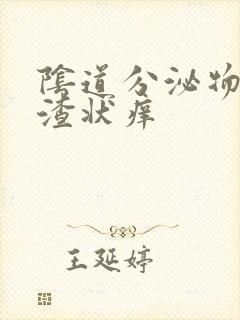 陰道分泌物
渣状痒
王延婷